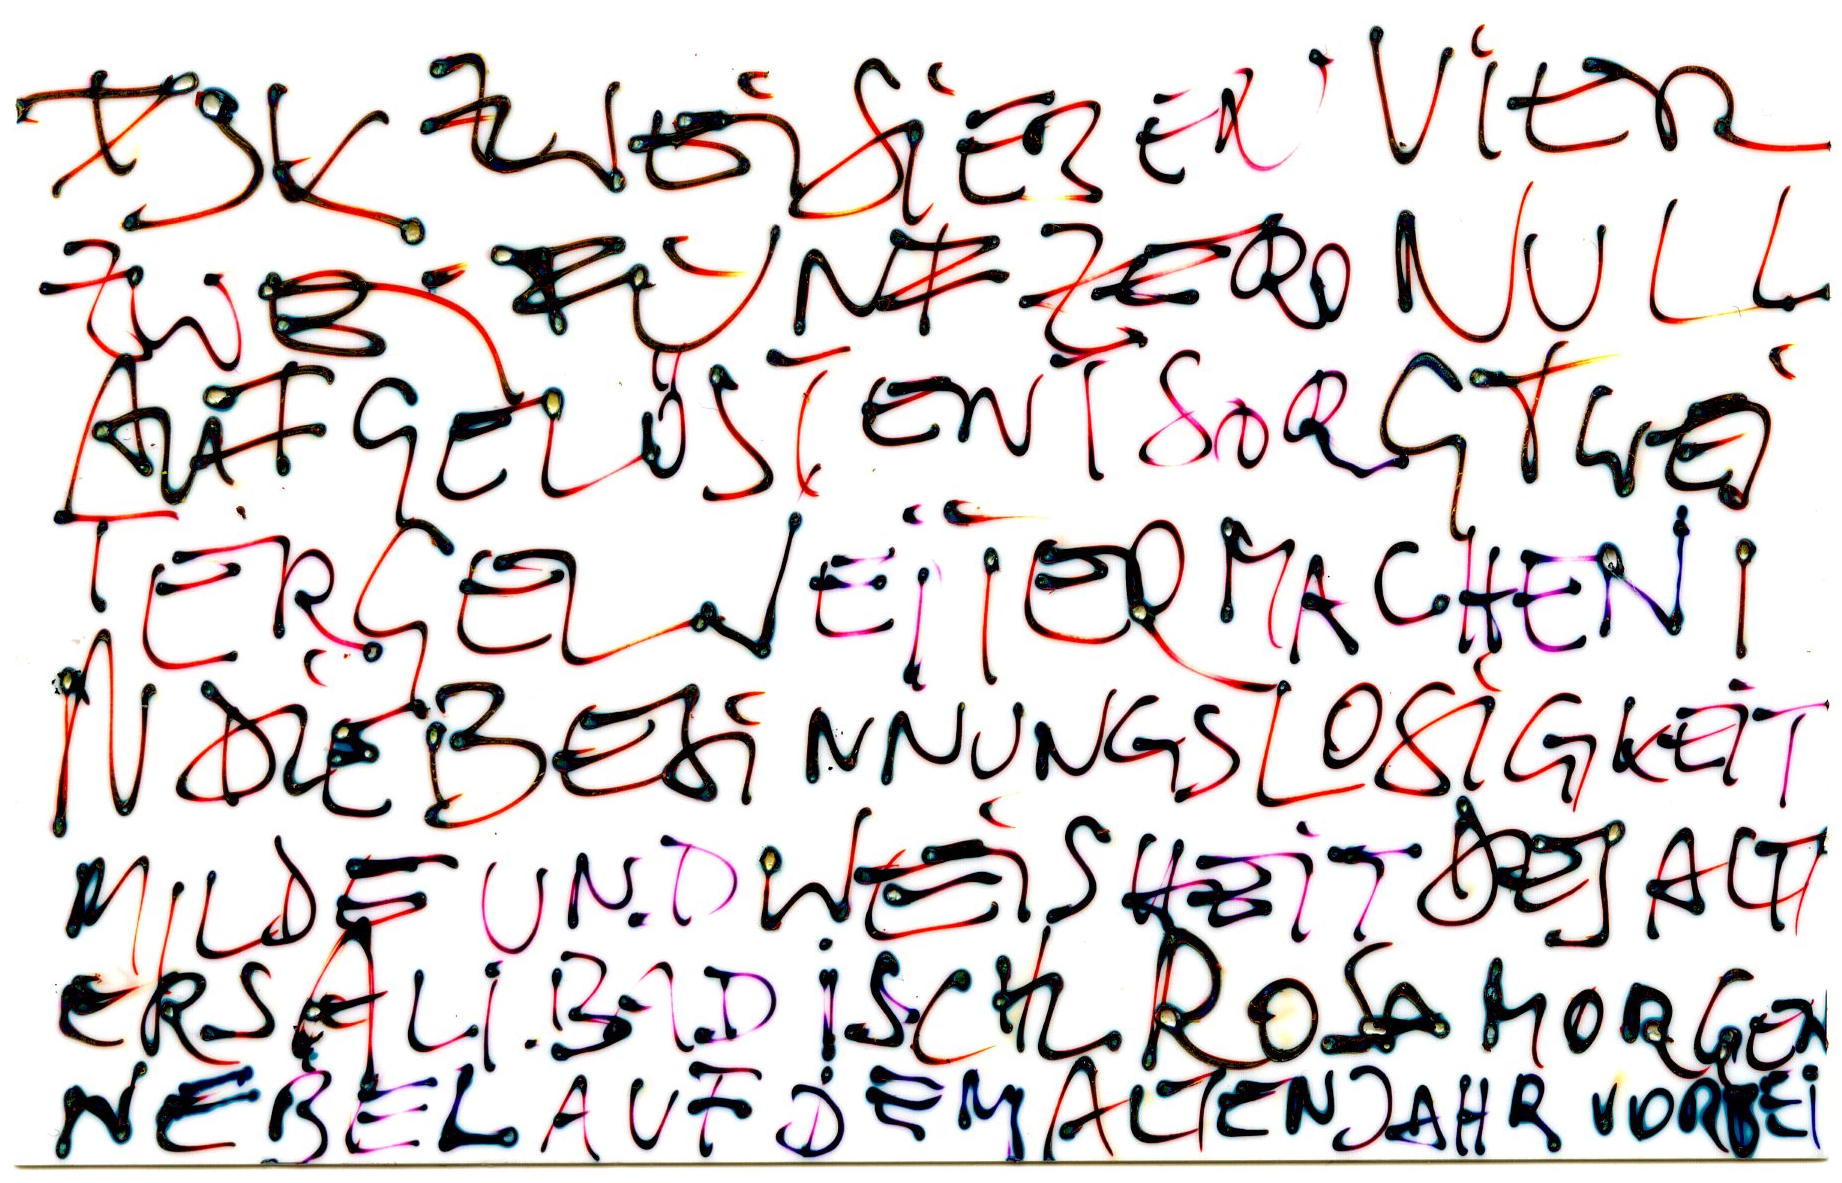 TSK ZWEI SIEBEN VIER
ZWEI FÜNF ZERO NULL
AUFGELÖST ENTSORGT WEI
TERGEL WEITERMACHEN I
N DIE BESINNUNGSLOSIGKEIT
MILDE UND WEISHEIT DES ALT
ERS ALI.BAD ISCHL ROSA MORGEN
NEBEL AUF DEM ALTEN JAHR VORBEI